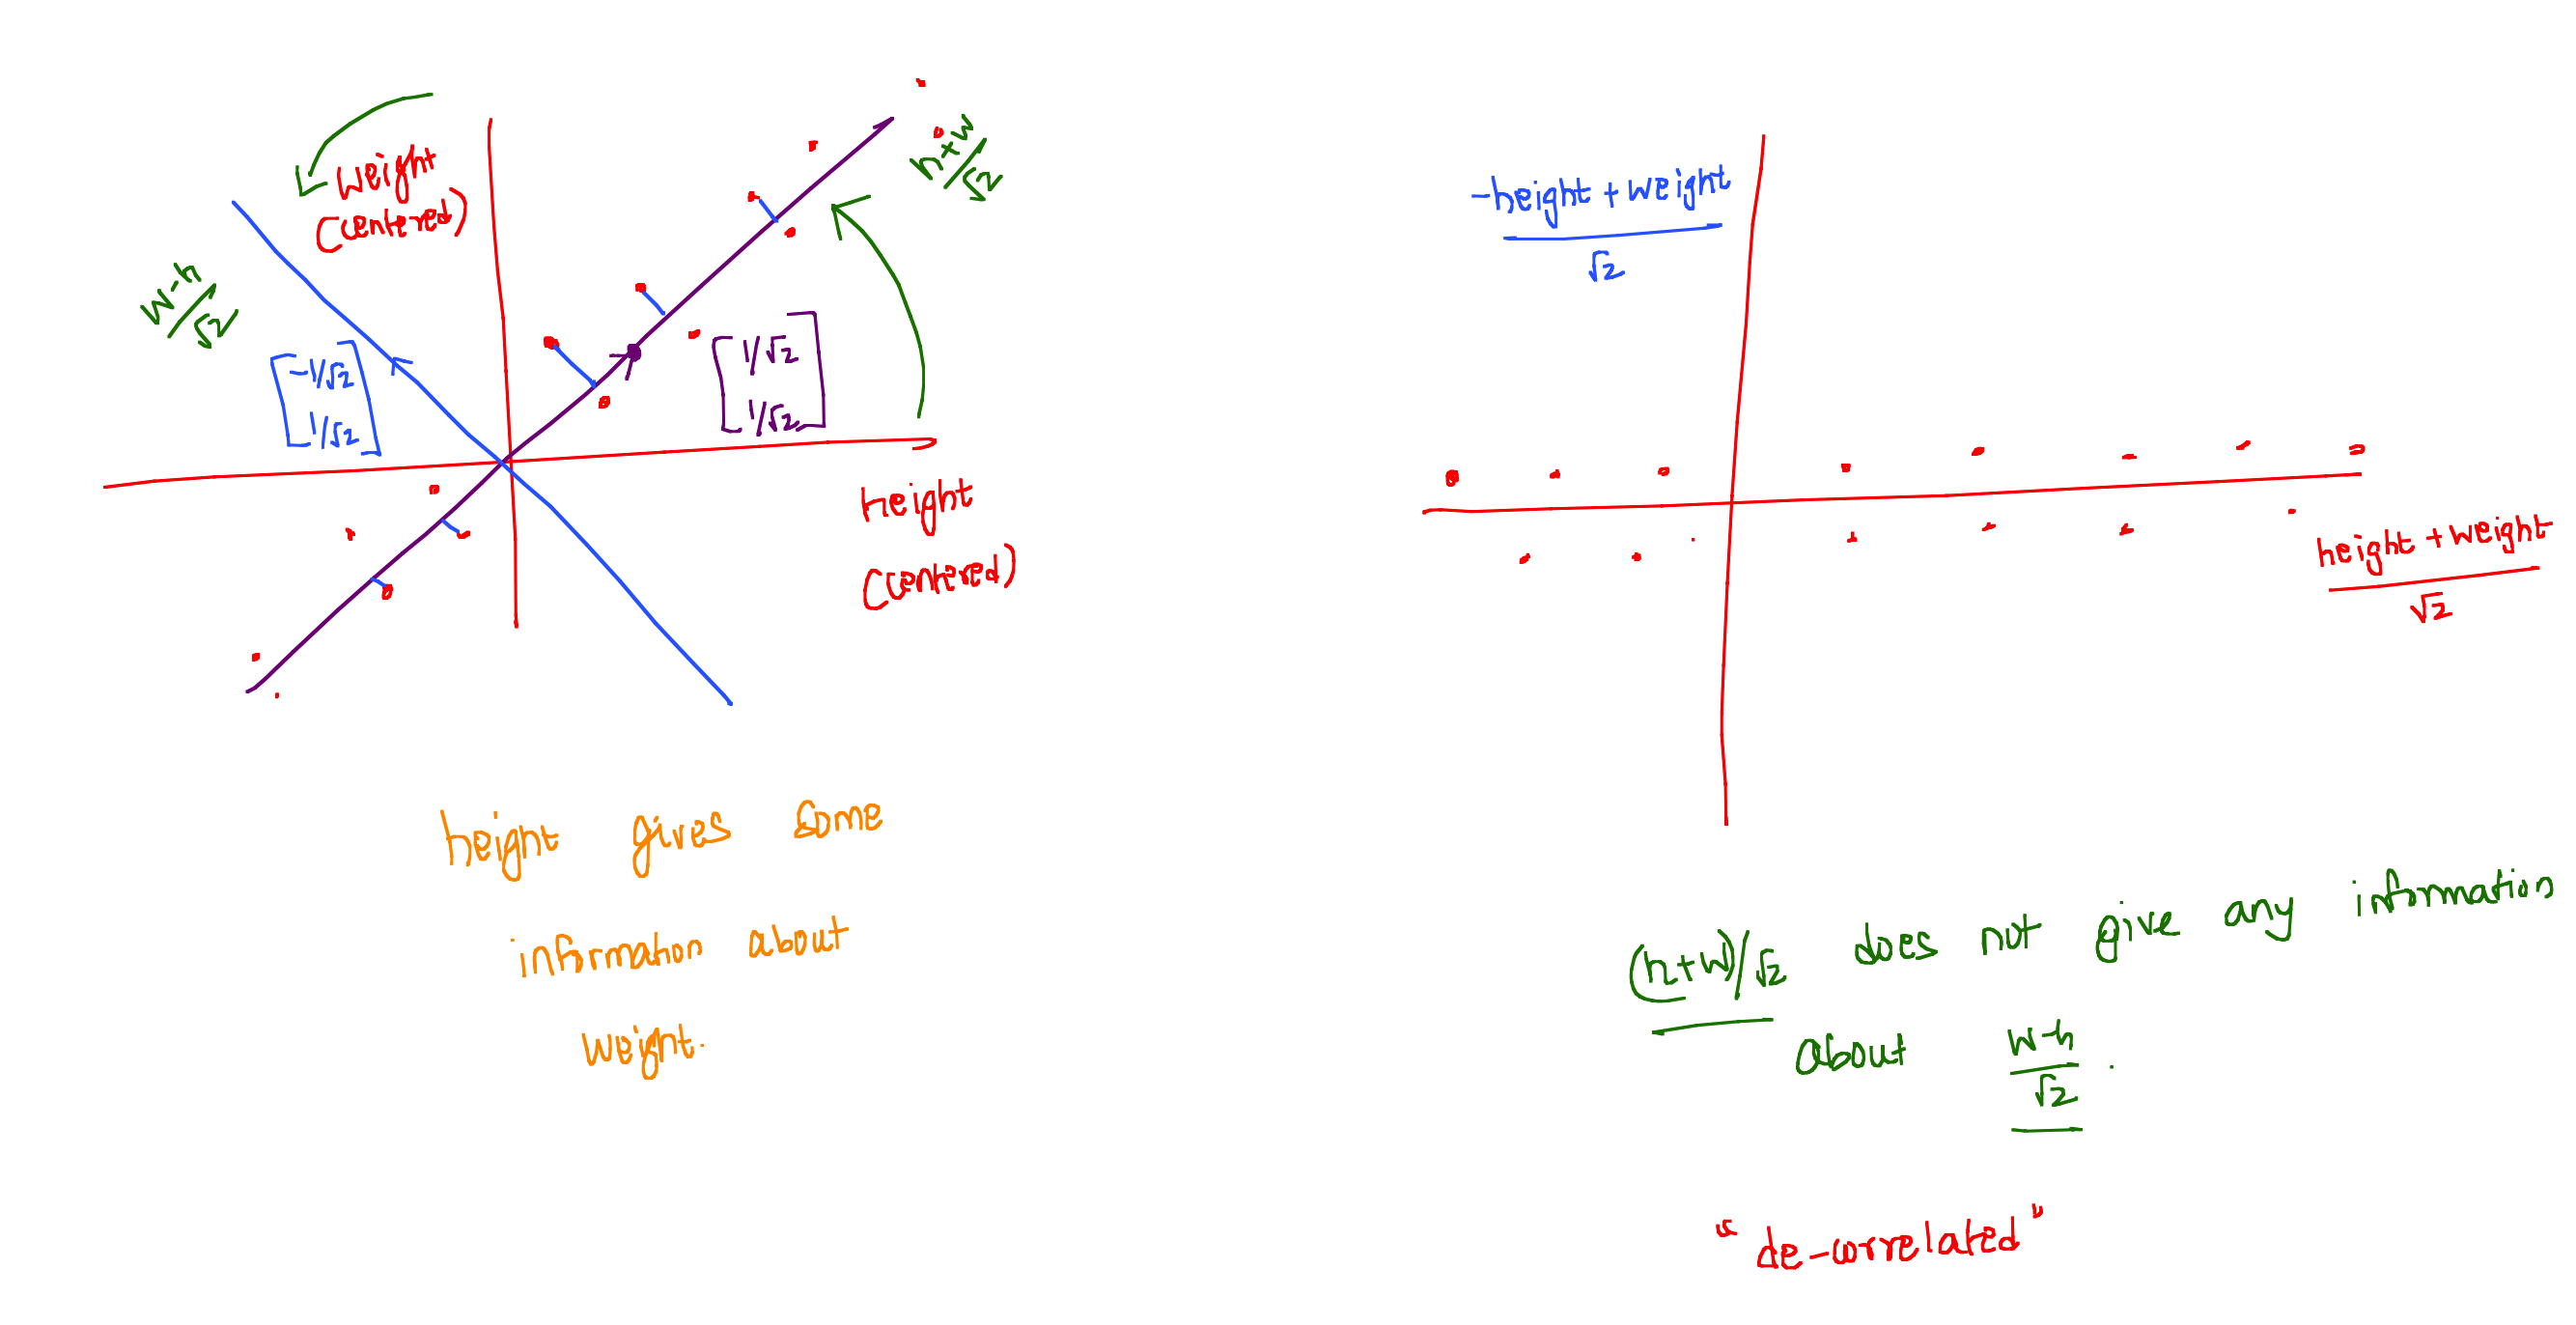 weight
(centered)
h+w/√2
w-h/√2
[-1/√2
1/√2]
[1/√2
1/√2]
height
(centered)
height gives some
information about
weight.
-height + weight
√2
height + weight
√2
(h+w)/√2 does not give any information
about w-h/√2.
"de-correlated"